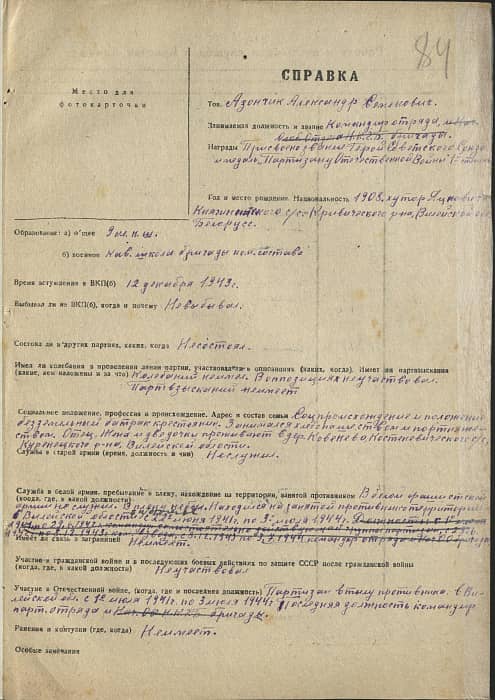 84
Место для
фотокарточки
СПРАВКА
Тов. Азончик Александр Семенович.
Занимаемая должность и звание Командир отряда,
бригады.
Награды Присвоено звание Героя Советского Союза
и медаль "Партизану Отечественной Войны" I степени
Год и место рождения. Национальность 1908, хутор Яцковичи
Княгининского с/со Кривического р-на, Вилейской обл.
Белорусс.
Образование: а) общее 3 кл. н. ш.
б) военное школа бригады ком. состава
Время вступления в ВКП(б) 12 декабря 1943 г.
Выбывал ли из ВКП(б), когда и почему Не выбывал.
Состоял ли в других партиях, каких, когда Не состоял.
Имел ли колебания в проведении линии партии, участвовал ли в оппозициях (каких, когда). Имеет ли партвзыскания
(какие, кем наложены и за что) Колебаний не имел. В оппозициях не участвовал.
Партвзысканий не имеет
Социальное положение, профессия и происхождение. Адрес и состав семьи Соц. происхождение и положение
безземельный батрак крестьянин. Занимался хлебопашеством и портняжеством.
Отец, жена и две дочки проживают в дер. Ковенево, Костеневического с/с,
Куренецкого р-на. Вилейской области.
Служба в старой армии (время, должность и чин) Не служил.
Служба в белой армии, пребывание в плену, нахождение на территории, занятой противником В белой и фашистской
(когда, где, в какой должности) армии не служил. В плену не был. Находился на занятой противником территории
в Вилейской области с 22 июня 1941 г. по 3 июля 1944 г.
Имеет ли связь с заграницей Не имеет.
Участие в гражданской войне и в последующих боевых действиях по защите СССР после гражданской войны
(когда, где, в какой должности) Не участвовал
Участие в Отечественной войне, (когда, где и последняя должность) Партизан в тылу противника. в Вилейской
обл. с июня 1941 г. по 3 июля 1944 г. Последняя должность командир
парт. отряда и бригады.
Ранения и контузии (где, когда) Не имеет.
Особые замечания